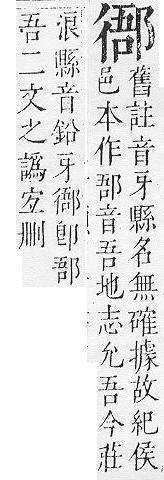 舊註音牙縣名無確據故紀侯
邑本作郚音吾地志允吾今莊
浪縣音鉛牙卽郚
吾二文之譌宐刪